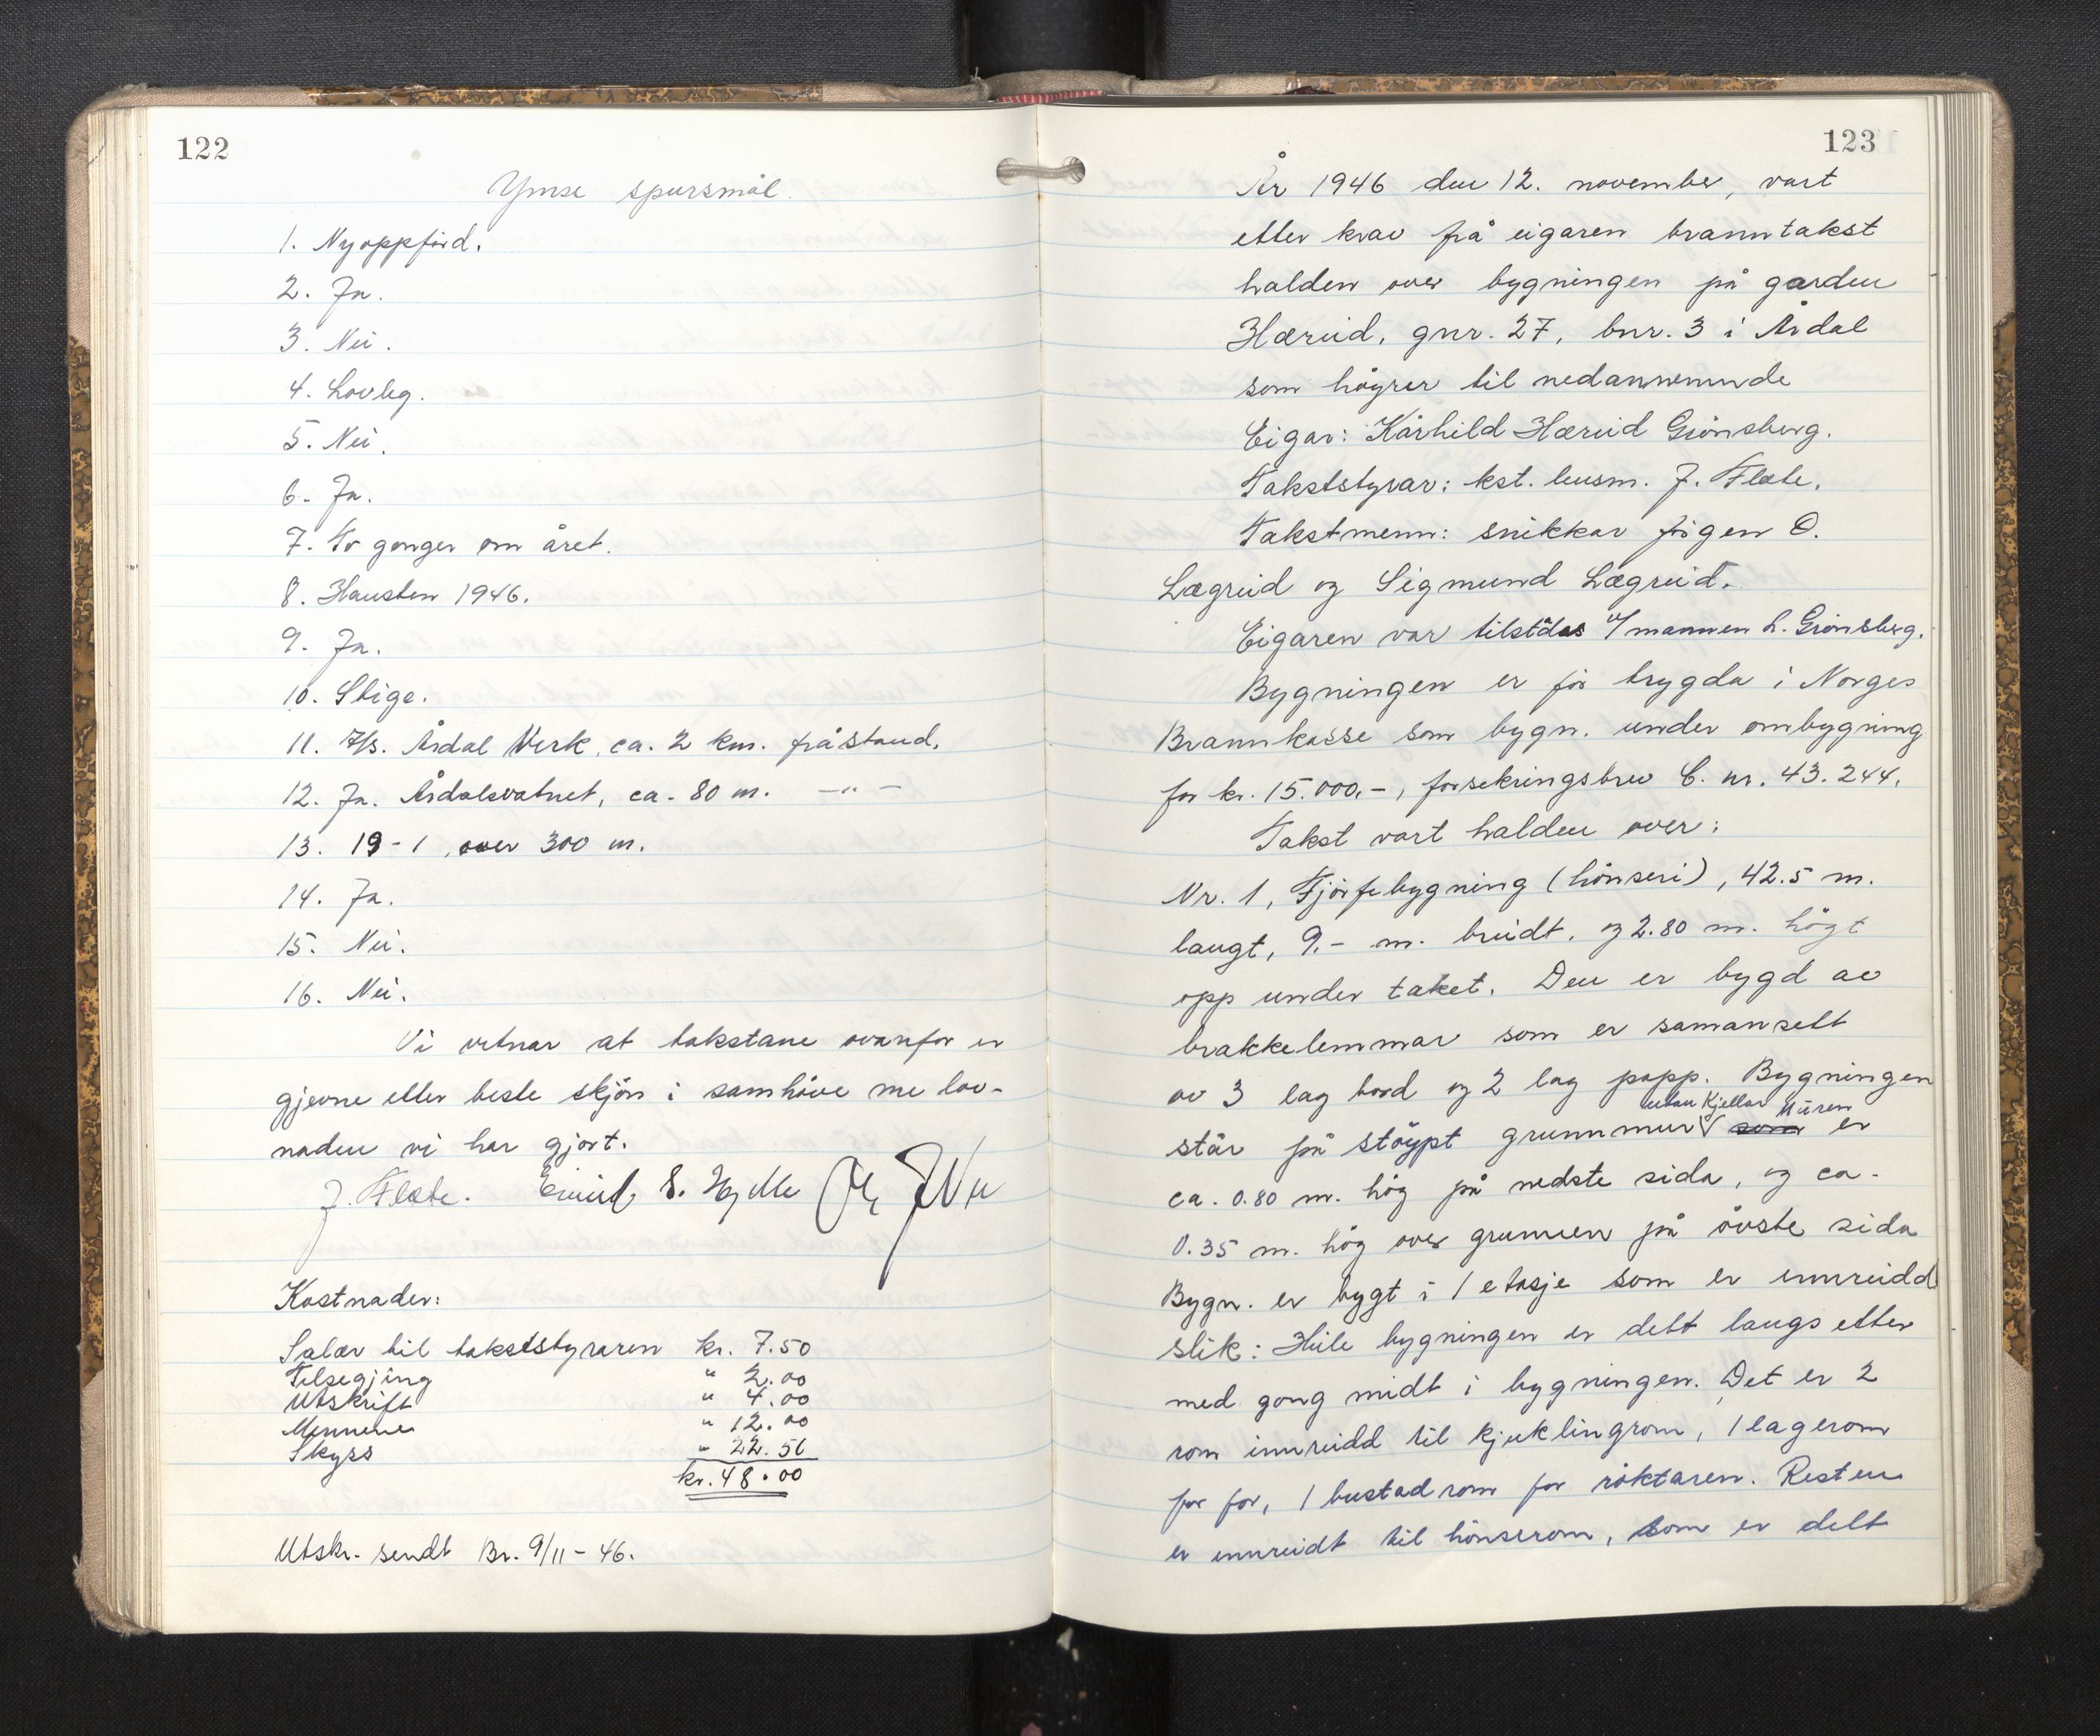 122
Ymse spursmål.
1. Nyoppförd.
2. Ja.
3. Nei.
4. Lovleg.
5. Nei.
6. Ja.
7. To gonger om året.
8. Hausten 1946.
9. Ja.
10. Stige.
11. A/s. Årdal Verk, ca. 2 km. fråstand.
12. Ja. Årdalsvatnet, ca. 80 m. -"-
13. 19-1, over 300 m.
14. Ja.
15. Nei.
16. Nei.
Vi vitnar at takstane ovanfor er
gjevne etter beste skjön i samhöve me lov-
naden vi har gjort.
J. Flæte. Eivind S. Hydle
Kostnader:
Salær til takststyraren kr. 7.50
Tilsegjing " 2.00
Utskrift " 4.00
Mennene " 12.00
Skyss " 22.50
kr. 48.00
Utskr. sendt Br. 9/11-46.
123
År 1946 den 12. november, vart
etter krav frå eigaren branntakst
halden over bygningen på garden
Hæreid, gnr. 27, bnr. 3 i Årdal
som högrer til nedannemnde
Eigar: Kårhild Hæreid Grönsberg.
Takststyrar: kst. lensm. J. Flæte.
Takstmenn: snikkar Jörgen O.
Lægreid og Sigmund Lægreid.
Eigaren var tilstdas v/mannen L. Grönsberg.
Bygningen er för trygda i Norges
Brannkasse som bygn. under ombygning
for kr. 15.000,-, forsekringsbrev C. nr. 43.244.
Takst vart halden over:
Nr. 1, Fjörfebygning (hönseri), 42.5 m.
langt, 9.- m. breidt, og 2.80 m. högt
opp under taket. Den er bygd av
brakkelemmar som er samansett
av 3 lag bord og 2 lag papp. Bygningen
utan kjellar Muren
står på stöypt grunnmur som er
ca. 0.80 m. hög på nedste sida, og ca.
0.35 m. hög over grunnen på övste sida
Bygn. er bygt i 1 etasje som er innreidd
slik: Heile bygningen er delt langs etter
med gong midt i bygningen. Det er 2
rom innreidd til kjuklingrom, 1 lagerom
for for, 1 bustadrom for röktaren. Resten
er innreidt til hönserom, som er delt